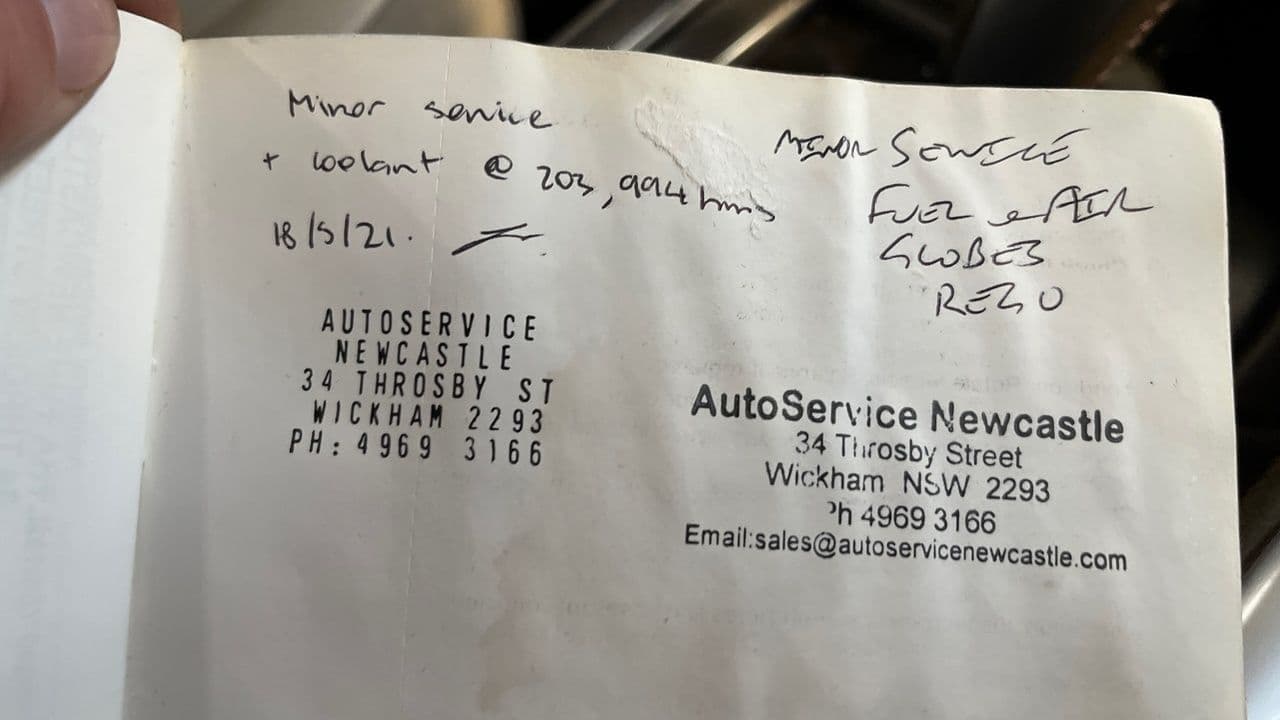 Minor service
+ coolant @ 203,994 kms
18/5/21.
AUTOSERVICE
NEWCASTLE
34 THROSBY ST
WICKHAM 2293
PH: 4969 3166
MINOR SERVICE
FUEL & AIR
GLOBES
REGO
AutoService Newcastle
34 Throsby Street
Wickham NSW 2293
Ph 4969 3166
Email:sales@autoservicenewcastle.com